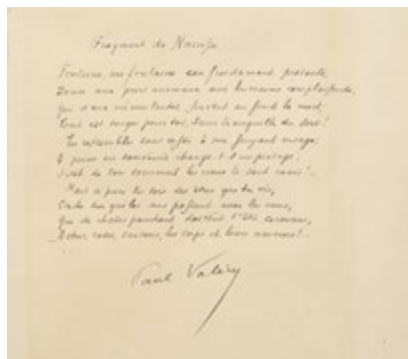 Fragment du Narcisse
Fontaine, ma fontaine eau froidement présente,
Douce aux purs animaux, aux humains complaisante,
Qui d'eux mêmes tentés, suivent au fond la mort,
Tout est songe pour toi, Sœur tranquille du Sort!
sans cesse à son fuyant visage,
À peine en souvenir change-t-il un présage,
Sitôt de ton sommeil les cieux te sont ravis!..
Mais si pure tu sois des êtres que tu vis,
Onde sur qui les ans passent comme les nues,
Que de choses pourtant doivent t'être connues,
Astres, roses, saisons, les corps et leurs amours!..
Paul Valéry